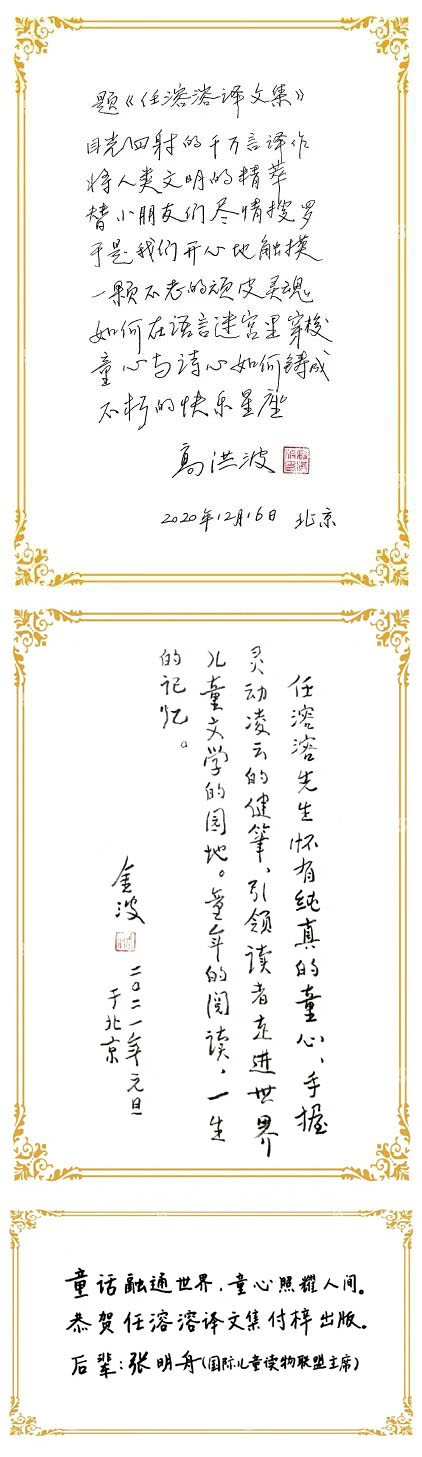 题《任溶溶译文集》
目光四射的千万言译作
将人类文明的精萃
替小朋友们尽情搜罗
于是我们开心地触摸
一颗不老的顽皮灵魂
如何在语言迷宫里穿梭
童心与诗心如何铸成
不朽的快乐星座
高洪波
2020年12月16日 北京
任溶溶先生怀有纯真的童心、手握
灵动凌云的健笔、引领读者走进世界
儿童文学的园地。童年的阅读，一生
的记忆。
金波
二〇二一年元旦
于北京
童话融通世界，童心照耀人间。
恭贺任溶溶译文集付梓出版。
后辈：张明舟(国际儿童读物联盟主席)